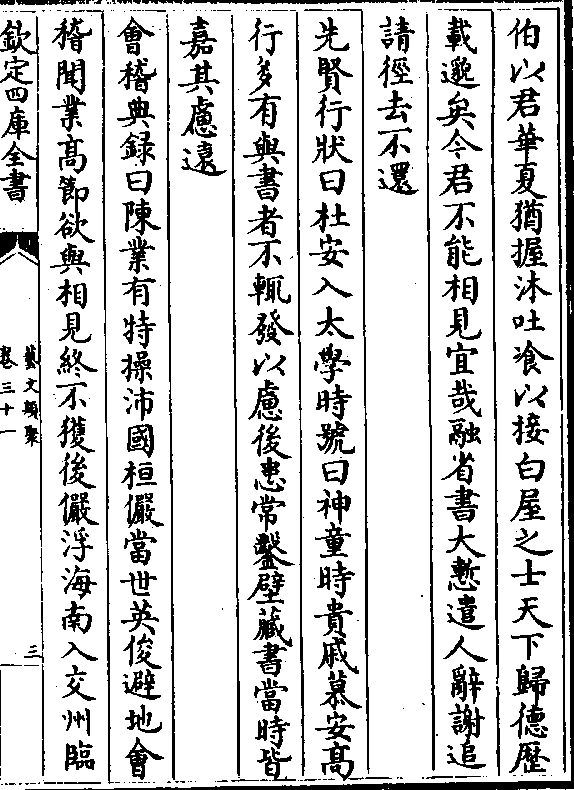 伯以君華夏猶握沐吐飡以接白屋之士天下歸德歴
載邈矣今君不能相見宜哉融省書大慙遣人辭謝追
請徑去不還
先賢行狀曰杜安入太學時號曰神童時貴戚慕安髙
行多有與書者不輒發以慮後患常鑿壁藏書當時皆
嘉其慮遠
會稽典録曰陳業有特操沛國桓儼當世英俊避地會
稽聞業髙節欲與相見終不獲後儼浮海南入交州臨
欽定四庫全書
藝文類聚
卷三十一
三